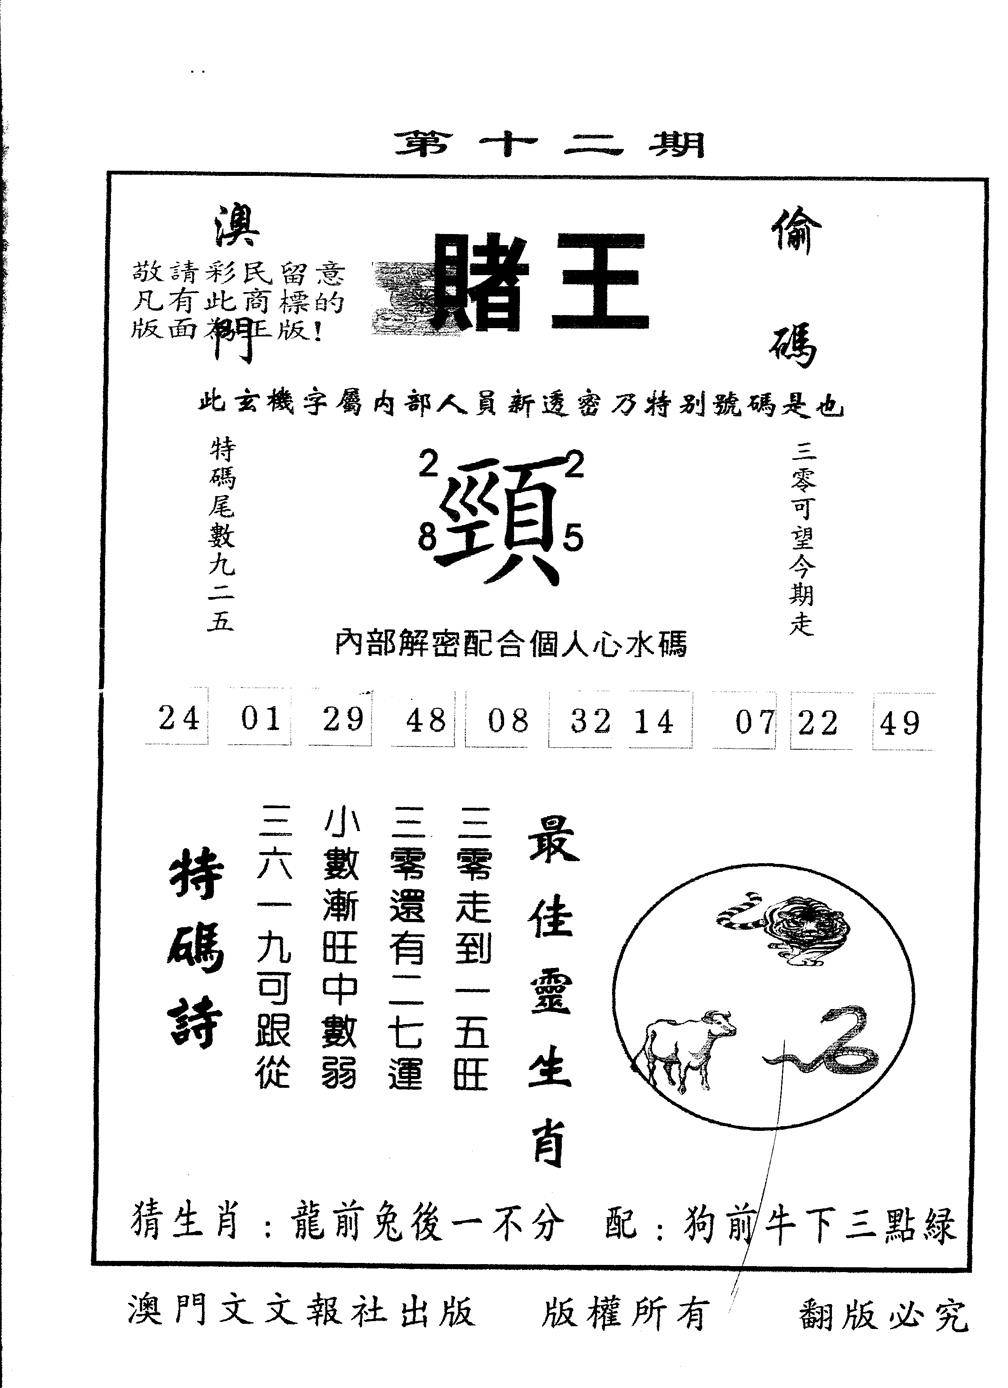 第十二期
澳門
敬請彩民留意
凡有此商標的
版面為正版!
賭王
偷碼
此玄機字屬內部人員新透密乃特别號碼是也
特碼尾數九二五
2 2
頸
8 5
三零可望今期走
內部解密配合個人心水碼
24 01 29 48 08 32 14 07 22 49
最佳靈生肖
三零走到一五旺
三零還有二七運
小數漸旺中數弱
三六一九可跟從
特碼詩
猜生肖：龍前兔後一不分 配：狗前牛下三點緑
澳門文文報社出版 版權所有 翻版必究